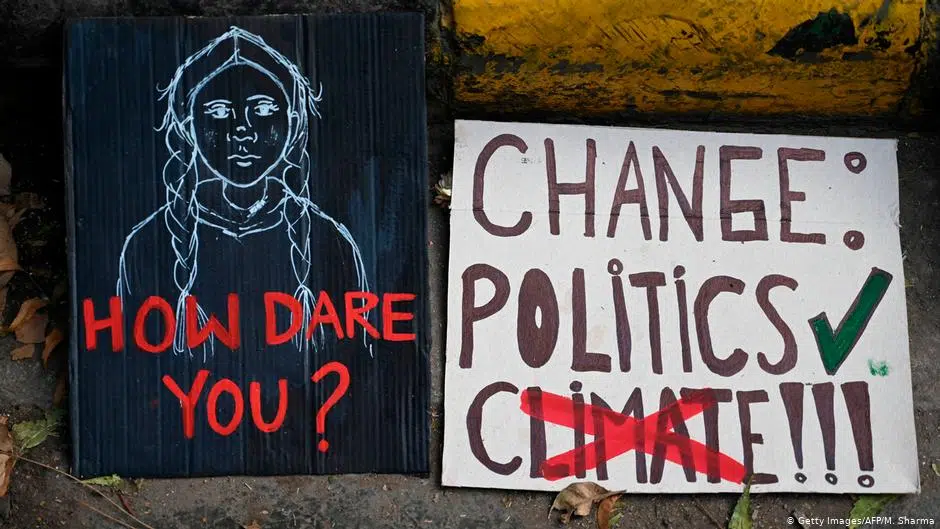 HOW DARE
YOU?
CHANGE:
POLITICS ✓
CLIMATE!!!
© Getty Images/AFP/M. Sharma